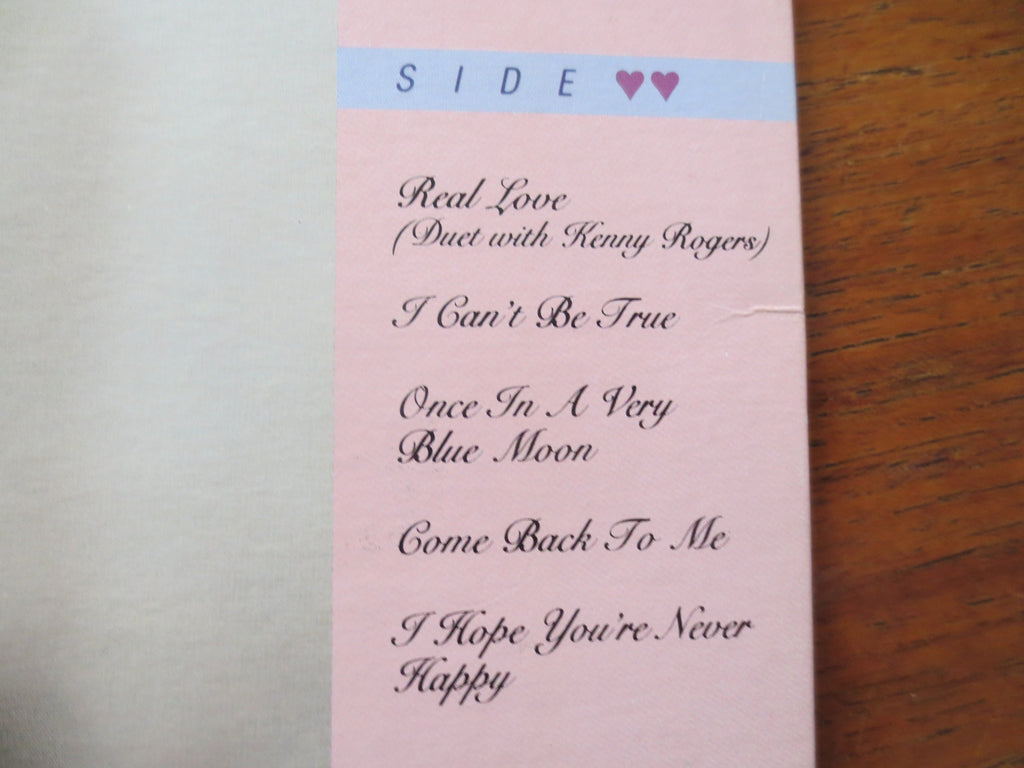 SIDE ♥♥
Real Love
(Duet with Kenny Rogers)
I Can't Be True
Once In A Very
Blue Moon
Come Back To Me
I Hope You're Never
Happy